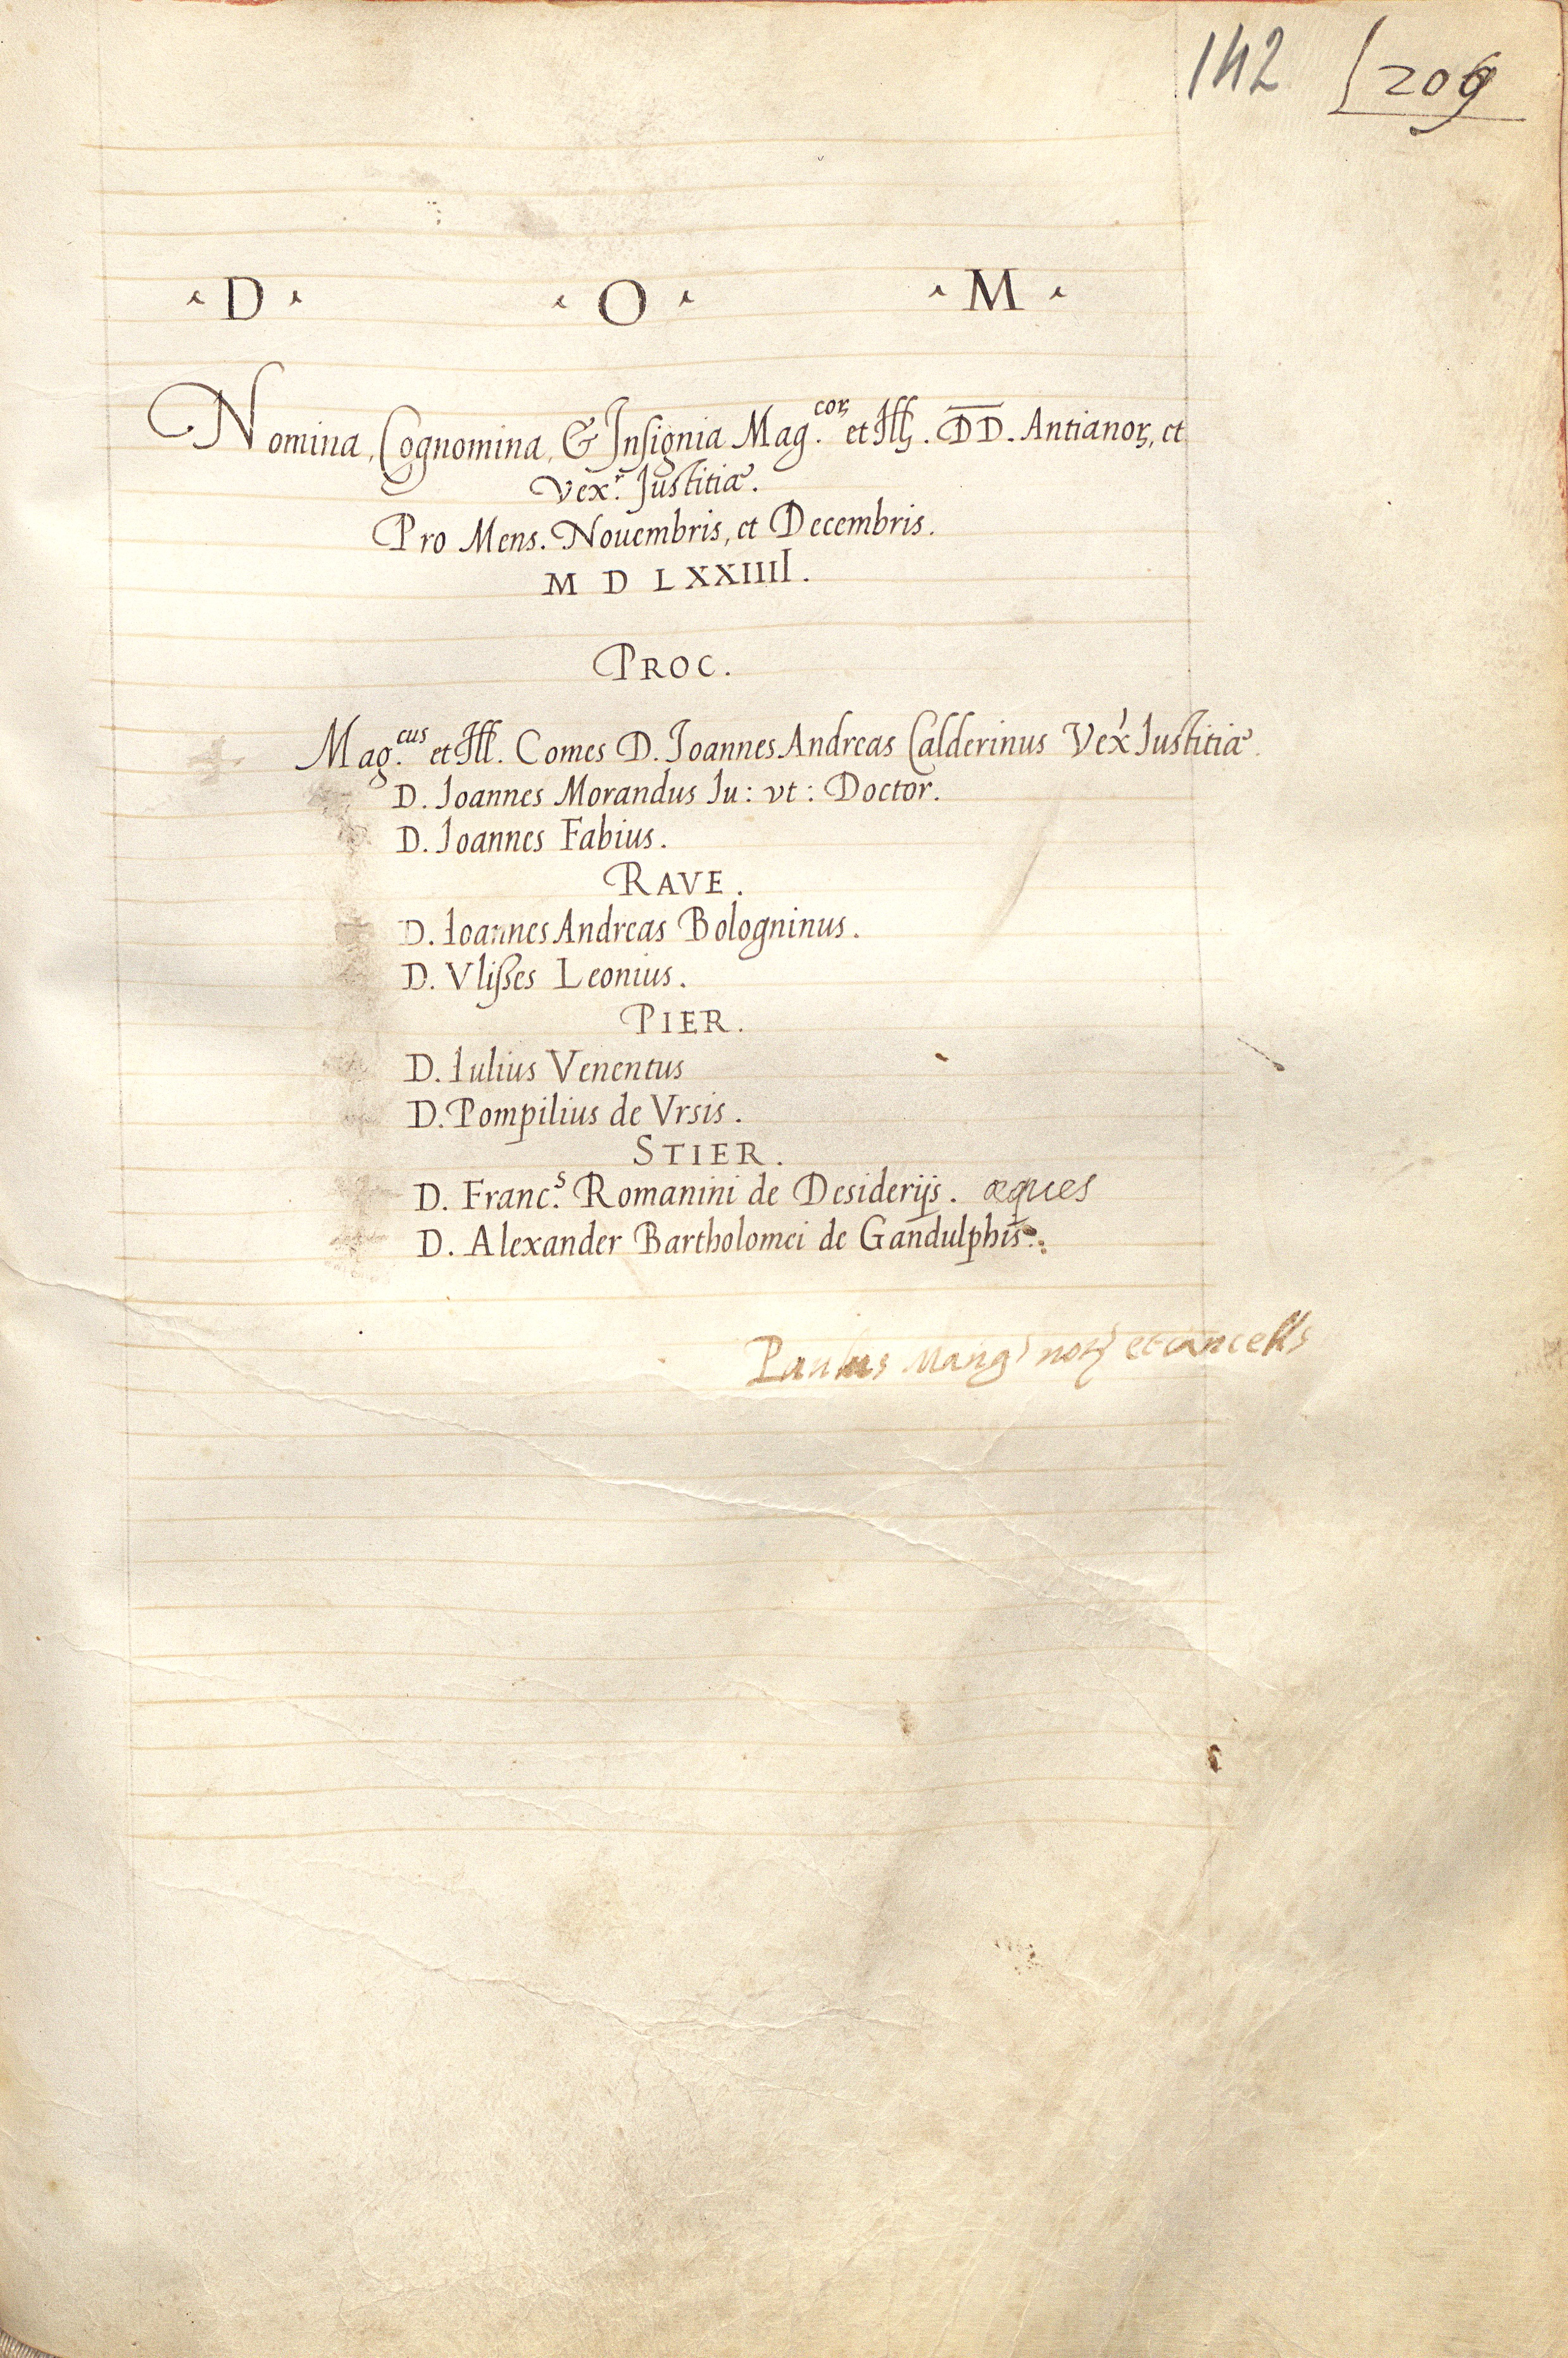 142 209
D O M
Nomina, Cognomina, & Insignia Mag.coꝝ et Illꝝ. DD. Antianoꝝ, et
Vex.r Justitiæ.
Pro Mens. Nouembris, et Decembris.
M D LXXIIII.
PROC.
Mag.cus et Ill. Comes D. Joannes Andreas Calderinus Vex.r Iustitiæ
D. Ioannes Morandus Iu: vt: Doctor.
D. Ioannes Fabius.
RAVE.
D. Ioannes Andreas Bologninus.
D. Vlißes Leonius.
PIER.
D. Iulius Venentus
D. Pompilius de Vrsis.
STIER.
D. Franc.s Romanini de Desiderijs. æques
D. Alexander Bartholomei de Gandulphis.
Paulus Mang noꝝ et cancells